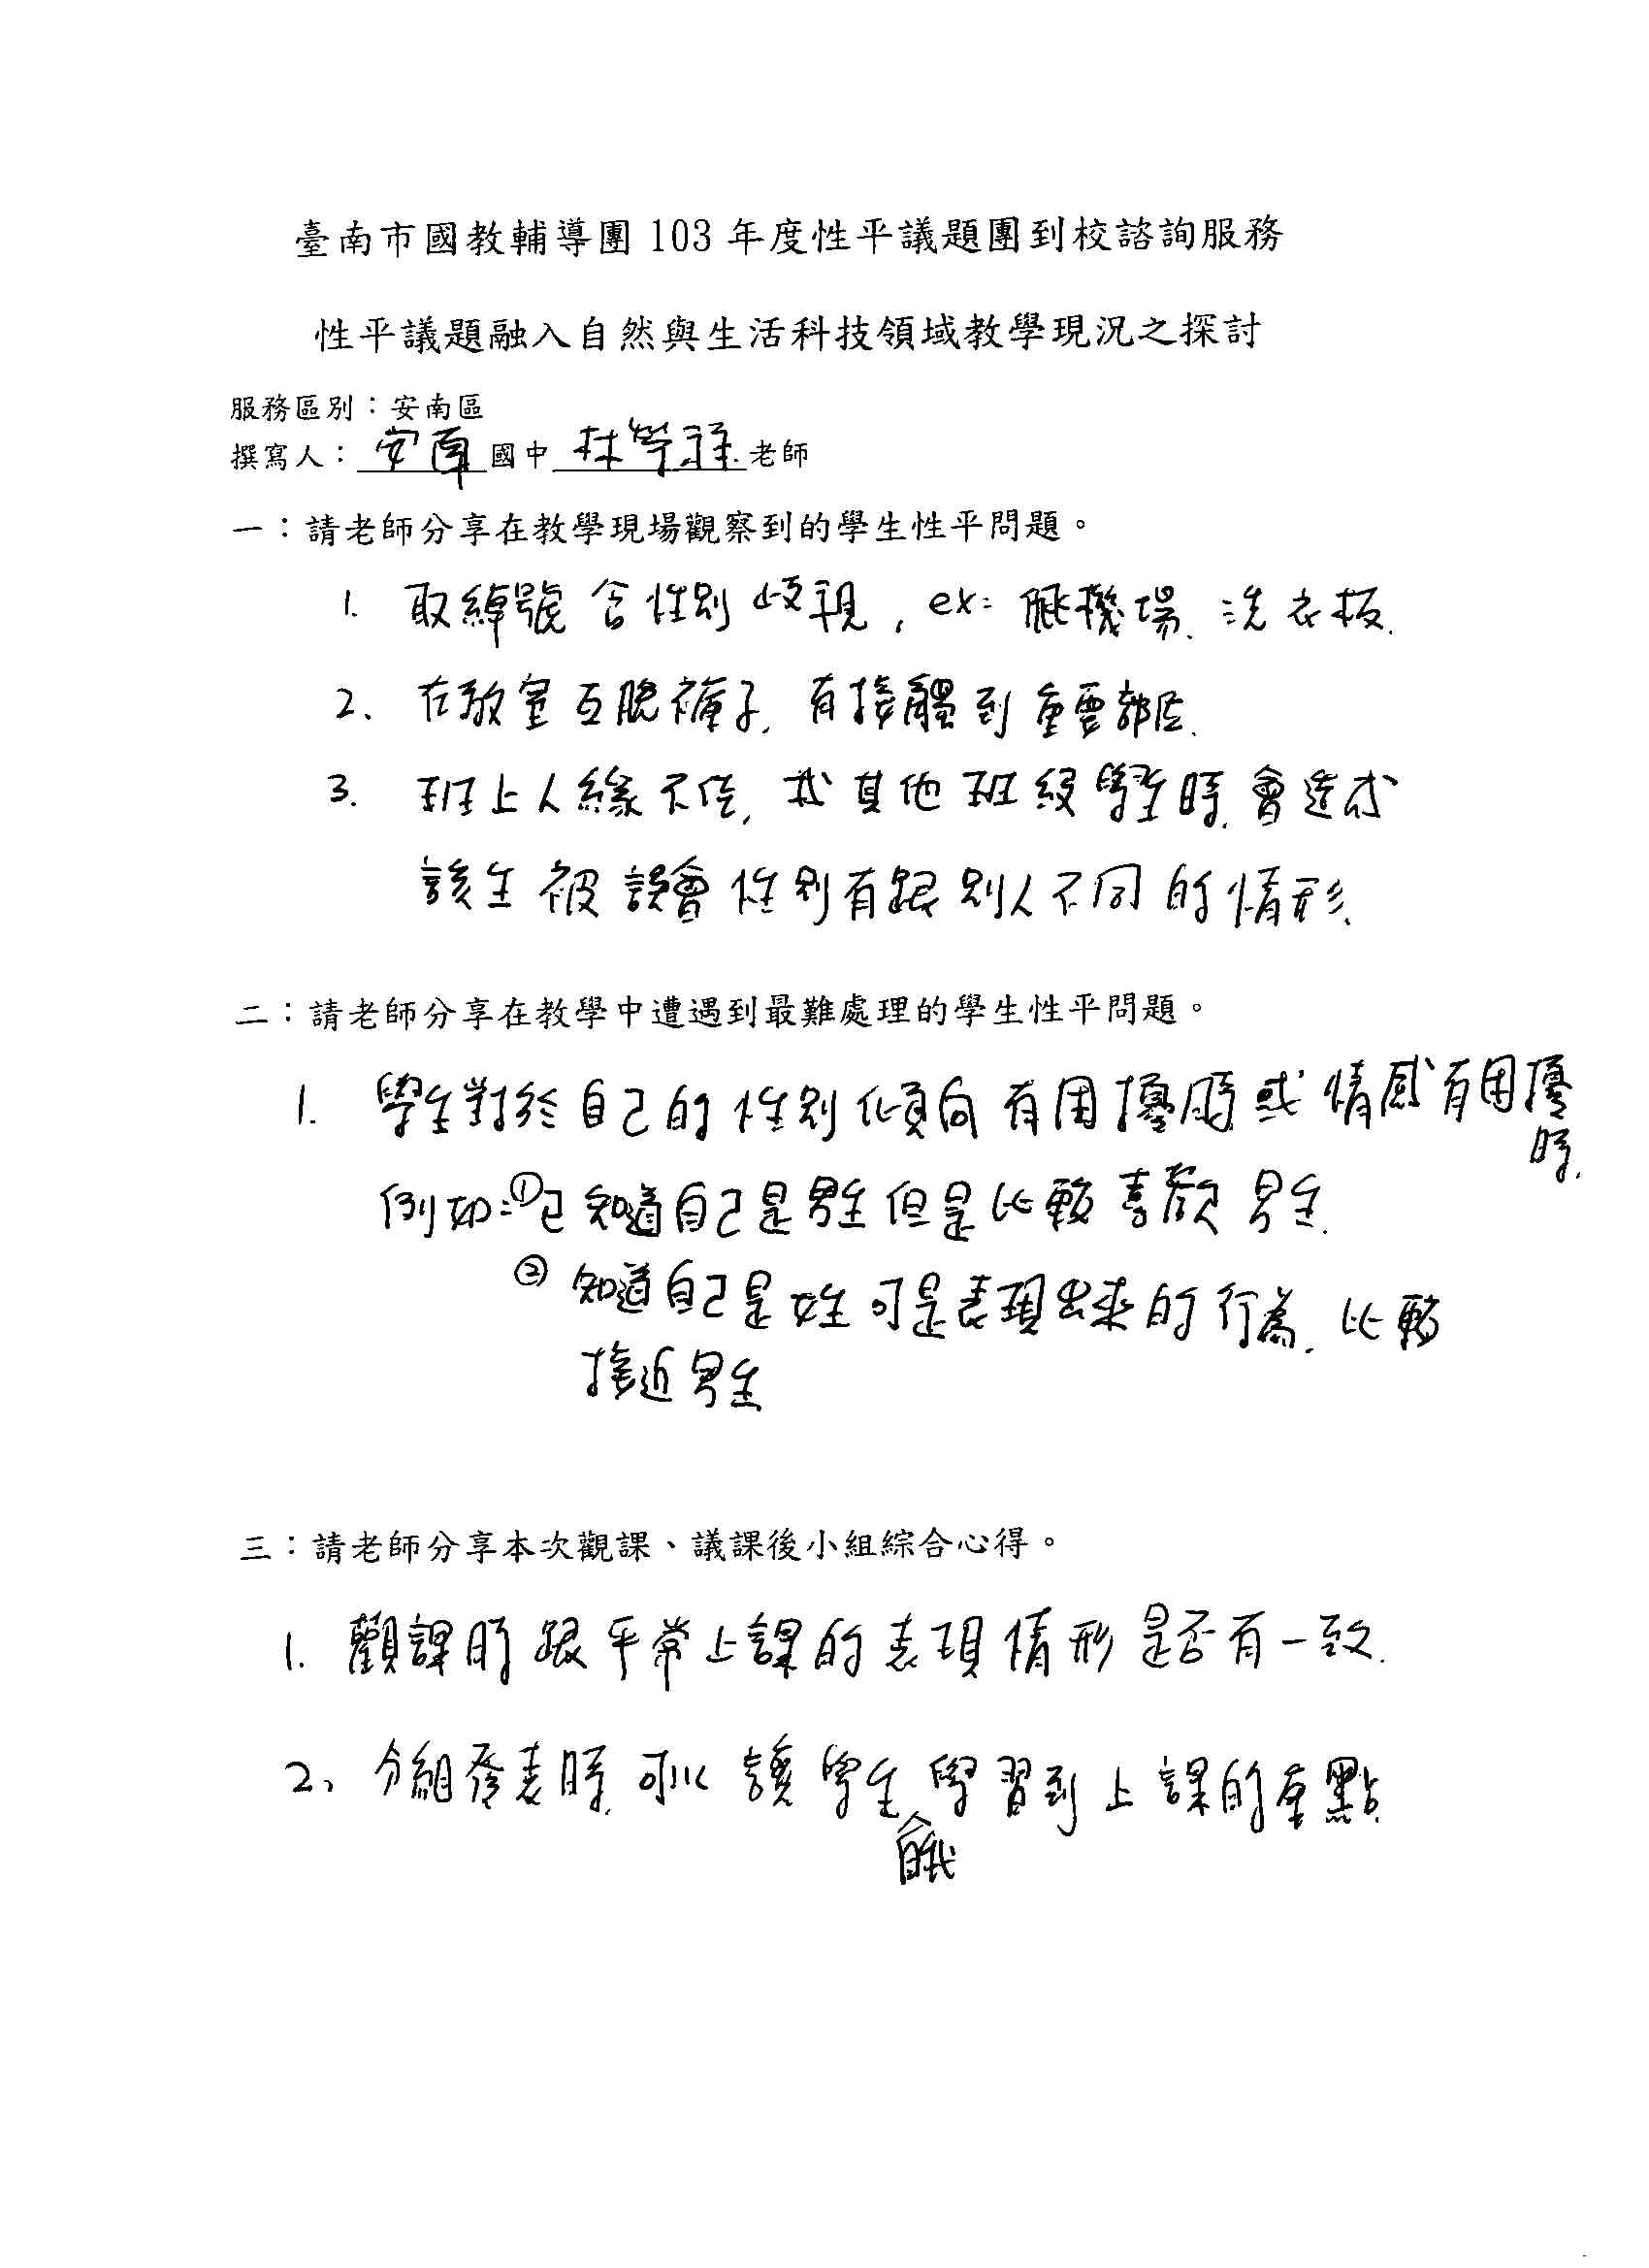 臺南市國教輔導團 103 年度性平議題團到校諮詢服務
性平議題融入自然與生活科技領域教學現況之探討
服務區別：安南區
撰寫人：安南國中林老師
一：請老師分享在教學現場觀察到的學生性平問題。
1. 取綽號含性別歧視, ex: 飛機場、洗衣板.
2、在教室互脫褲子, 有接觸到重要部位.
3. 班上人緣不佳, 找其他班級學生時, 會造成
該生被誤會性別有跟別人不同的情形、
二：請老師分享在教學中遭遇到最難處理的學生性平問題。
1. 學生對於自己的性別傾向有困擾時或情感有困擾
時.
例如:①已知道自己是男生但是比較喜歡男生.
② 知道自己是女生可是表現出來的行為, 比較
接近男生
三：請老師分享本次觀課、議課後小組綜合心得。
1. 觀課時跟平常上課的表現情形是否有一致.
2、分組發表時, 可以讓學生學習到上課的重點.
會我